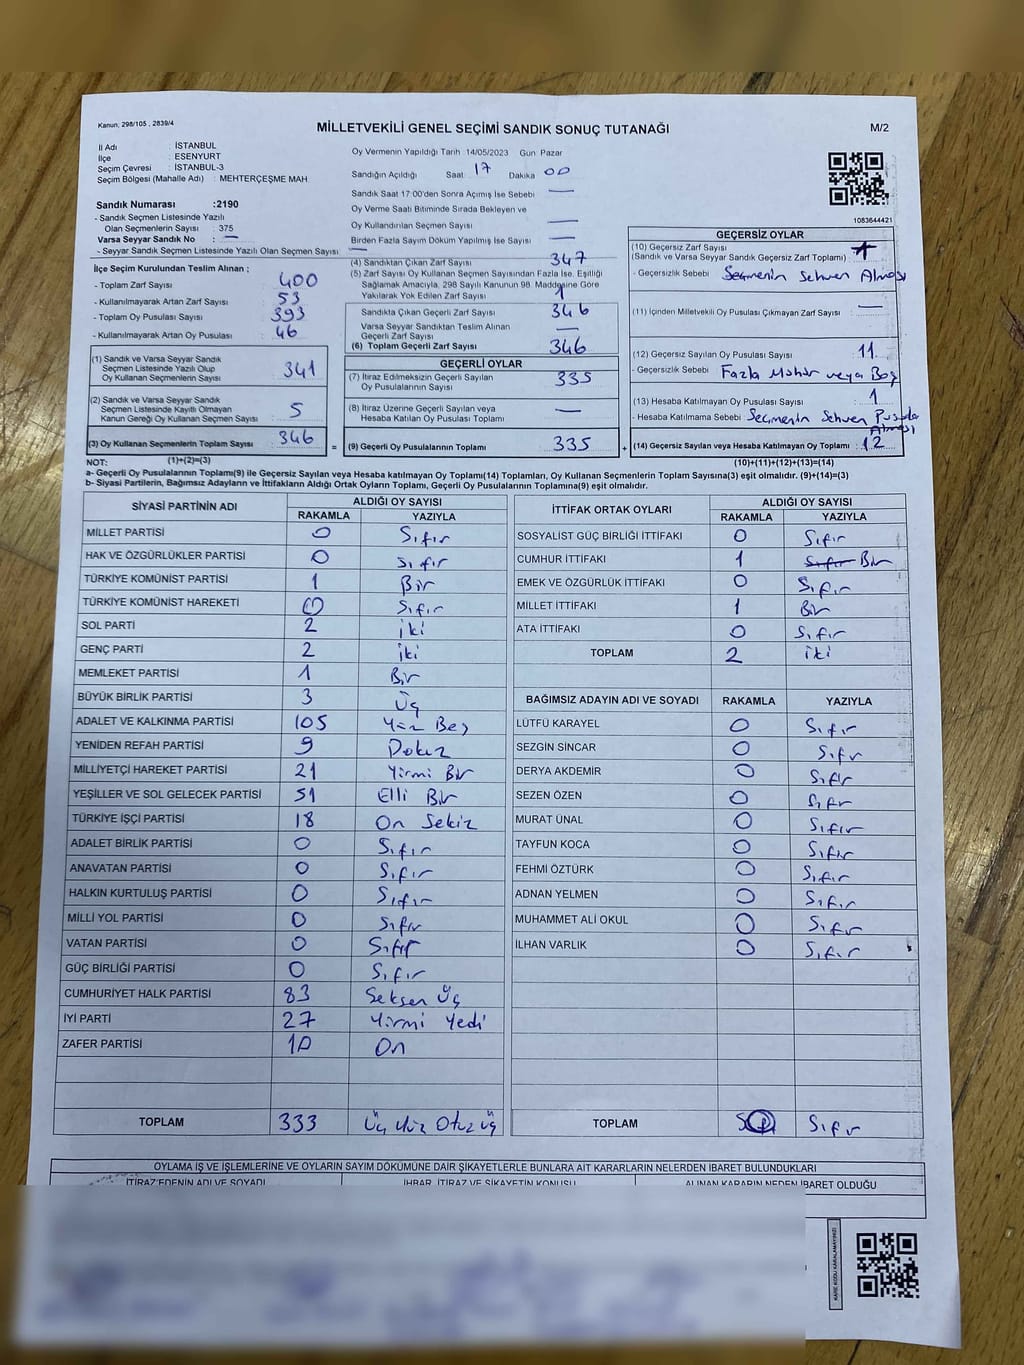 Kanun, 298/105 , 2839/4
MİLLETVEKİLİ GENEL SEÇİMİ SANDIK SONUÇ TUTANAĞI
M/2
İl Adı İSTANBUL
İlçe ESENYURT
Seçim Çevresi : İSTANBUL-3
Seçim Bölgesi (Mahalle Adı) : MEHTERÇEŞME MAH
Sandık Numarası :2190
- Sandık Seçmen Listesinde Yazılı
Olan Seçmenlerin Sayısı : 375
Varsa Seyyar Sandık No : —
- Seyyar Sandık Seçmen Listesinde Yazılı Olan Seçmen Sayısı : —
Oy Vermenin Yapıldığı Tarih 14/05/2023 Gün Pazar
Sandığın Açıldığı Saat 17 Dakika 00
Sandık Saat 17:00'den Sonra Açımış İse Sebebi —
Oy Verme Saati Bitiminde Sırada Bekleyen ve
Oy Kullandırılan Seçmen Sayısı —
Birden Fazla Sayım Döküm Yapılmış İse Sayısı —
1083644421
İlçe Seçim Kurulundan Teslim Alınan ;
- Toplam Zarf Sayısı : 400
- Kullanılmayarak Artan Zarf Sayısı : 53
- Toplam Oy Pusulası Sayısı : 393
- Kullanılmayarak Artan Oy Pusulası : 46
(1) Sandık ve Varsa Seyyar Sandık
Seçmen Listesinde Yazılı Olup
Oy Kullanan Seçmenlerin Sayısı : 341
(2) Sandık ve Varsa Seyyar Sandık
Seçmen Listesinde Kayıtlı Olmayan
Kanun Gereği Oy Kullanan Seçmen Sayısı : 5
(3) Oy Kullanan Seçmenlerin Toplam Sayısı : 346
(1)+(2)=(3)
(4) Sandıktan Çıkan Zarf Sayısı : 347
(5) Zarf Sayısı Oy Kullanan Seçmen Sayısından Fazla İse, Eşitliği
Sağlamak Amacıyla, 298 Sayılı Kanunun 98. Maddesine Göre
Yakılarak Yok Edilen Zarf Sayısı : 1
Sandıkta Çıkan Geçerli Zarf Sayısı : 346
Varsa Seyyar Sandıktan Teslim Alınan
Geçerli Zarf Sayısı : —
(6) Toplam Geçerli Zarf Sayısı : 346
GEÇERLİ OYLAR
(7) İtiraz Edilmeksizin Geçerli Sayılan
Oy Pusulalarının Sayısı : 335
(8) İtiraz Üzerine Geçerli Sayılan veya
Hesaba Katılan Oy Pusulalarının Sayısı : —
= (9) Geçerli Oy Pusulalarının Toplamı : 335 +
GEÇERSİZ OYLAR
(10) Geçersiz Zarf Sayısı
(Sandık ve Varsa Seyyar Sandık Geçersiz Zarf Toplamı) :
- Geçersizlik Sebebi : Seçmenin Sehven Alması
(11) İçinden Milletvekili Oy Pusulası Çıkmayan Zarf Sayısı : —
(12) Geçersiz Sayılan Oy Pusulası Sayısı : 11
- Geçersizlik Sebebi : Fazla Mühür veya Boş
(13) Hesaba Katılmayan Oy Pusulası Sayısı : 1
- Hesaba Katılmama Sebebi : Seçmenin Sehven Pusula
Alması
(14) Geçersiz Sayılan veya Hesaba Katılmayan Oy Toplamı : 12
(10)+(11)+(12)+(13)=(14)
NOT:
a- Geçerli Oy Pusulalarının Toplamı(9) ile Geçersiz Sayılan veya Hesaba katılmayan Oy Toplamı(14) Toplamları, Oy Kullanan Seçmenlerin Toplam Sayısına(3) eşit olmalıdır. (9)+(14)=(3)
b- Siyasi Partilerin, Bağımsız Adayların ve İttifakların Aldığı Ortak Oyların Toplamı, Geçerli Oy Pusulalarının Toplamına(9) eşit olmalıdır.
SİYASİ PARTİNİN ADI ALDIĞI OY SAYISI
RAKAMLA YAZIYLA
MİLLET PARTİSİ 0 Sıfır
HAK VE ÖZGÜRLÜKLER PARTİSİ 0 Sıfır
TÜRKİYE KOMÜNİST PARTİSİ 1 Bir
TÜRKİYE KOMÜNİST HAREKETİ 0 Sıfır
SOL PARTİ 2 iki
GENÇ PARTİ 2 iki
MEMLEKET PARTİSİ 1 Bir
BÜYÜK BİRLİK PARTİSİ 3 Üç
ADALET VE KALKINMA PARTİSİ 105 Yüz Beş
YENİDEN REFAH PARTİSİ 9 Dokuz
MİLLİYETÇİ HAREKET PARTİSİ 21 Yirmi Bir
YEŞİLLER VE SOL GELECEK PARTİSİ 51 Elli Bir
TÜRKİYE İŞÇİ PARTİSİ 18 On Sekiz
ADALET BİRLİK PARTİSİ 0 Sıfır
ANAVATAN PARTİSİ 0 Sıfır
HALKIN KURTULUŞ PARTİSİ 0 Sıfır
MİLLİ YOL PARTİSİ 0 Sıfır
VATAN PARTİSİ 0 Sıfır
GÜÇ BİRLİĞİ PARTİSİ 0 Sıfır
CUMHURİYET HALK PARTİSİ 83 Seksen Üç
İYİ PARTİ 27 Yirmi Yedi
ZAFER PARTİSİ 10 On
TOPLAM 333 Üç Yüz Otuz üç
İTTİFAK ORTAK OYLARI ALDIĞI OY SAYISI
RAKAMLA YAZIYLA
SOSYALİST GÜÇ BİRLİĞİ İTTİFAKI 0 Sıfır
CUMHUR İTTİFAKI 1 Sıfır Bir
EMEK VE ÖZGÜRLÜK İTTİFAKI 0 Sıfır
MİLLET İTTİFAKI 1 Bir
ATA İTTİFAKI 0 Sıfır
TOPLAM 2 iki
BAĞIMSIZ ADAYIN ADI VE SOYADI RAKAMLA YAZIYLA
LÜTFÜ KARAYEL 0 Sıfır
SEZGİN SİNCAR 0 Sıfır
DERYA AKDEMİR 0 Sıfır
SEZEN ÖZEN 0 Sıfır
MURAT ÜNAL 0 Sıfır
TAYFUN KOCA 0 Sıfır
FEHMİ ÖZTÜRK 0 Sıfır
ADNAN YELMEN 0 Sıfır
MUHAMMET ALİ OKUL 0 Sıfır
İLHAN VARLIK 0 Sıfır
TOPLAM 0 Sıfır
OYLAMA İŞ VE İŞLEMLERİNE VE OYLARIN SAYIM DÖKÜMÜNE DAİR ŞİKAYETLERLE BUNLARA AİT KARARLARIN NELERDEN İBARET BULUNDUKLARI
İTİRAZ EDENİN ADI VE SOYADI İHBAR, İTİRAZ VE ŞİKAYETİN KONUSU ALINAN KARARIN NEDEN İBARET OLDUĞU
KARE KODU KARALAMAYINIZ!